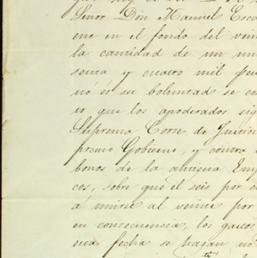 Señor Don Manuel Esca
ene en el fondo del vein
la cantidad de un mi
senta y cuatro mil pes
no á su boluntad se en
io que los apoderados sig
Suprema Corte de Justici
premo Gobierno, y contra
bonos de la antigua Emp
cos, sobre que el seis por ci
á mina al veinte por
en consecuencia, los gasos
cua fecha se bajan no